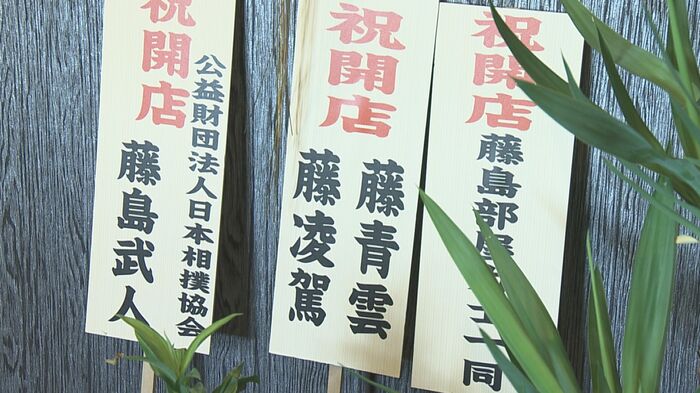 祝開店
藤島部屋
士一同
祝開店
藤青雲
藤凌駕
祝開店
公益財団法人日本相撲協会
藤島武人